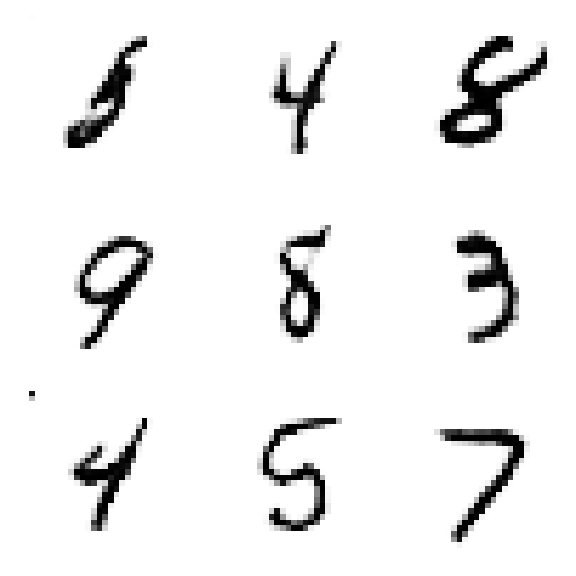 5 4 8
9 8 3
4 5 7